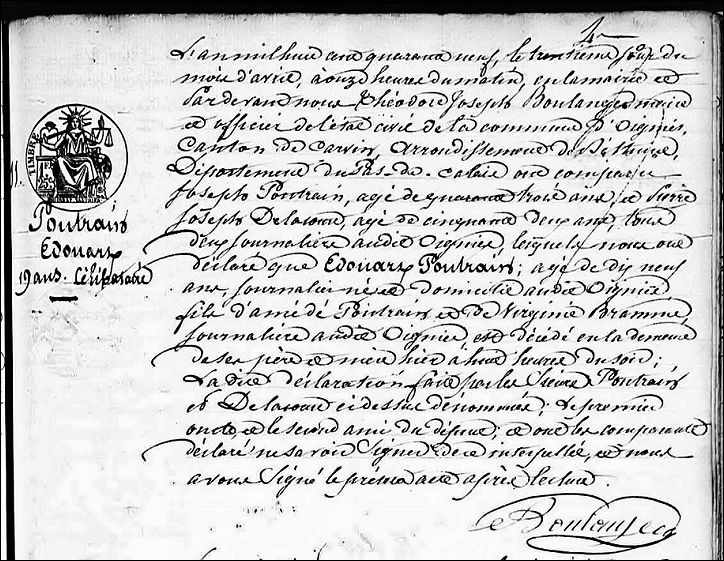 TIMBRE
11.
Poutrain
Edouart
19 ans. Célibataire
L'an mil huit cent quarante neuf, le trentième jour du
mois d'avril, a onze heures du matin, en la mairie et
Pardevant nous Théodore Joseph Boulanger maire
et officier de l'état civil de la commune d'Oignies,
Canton de Carvin, arrondissement de Bethune,
Département du Pas-de-Calais ont comparu
Joseph Poutrain, agé de quarante trois ans, et Pierre
Joseph Delacourt, agé de cinquante deux ans, tous
deux journaliers audit Oignies, lesquels nous ont
déclaré que Edouart Poutrain; agé de dix neuf
ans, journalier né et domicilié audit Oignies
fils d'amédé Poutrain et de Virginie Bramme
journaliers audit Oignies est décédé en la demeure
de ses père et mère hier à huit heures du soir;
La dite déclaration faite par les sieurs Poutrain
et Delacourt ci dessus dénommés; le premier
oncle, et le second ami du défunt; et ont les comparants
déclaré ne savoir signer de ce interpellés, et nous
avons signé le présent acte après lecture.
Boulanger